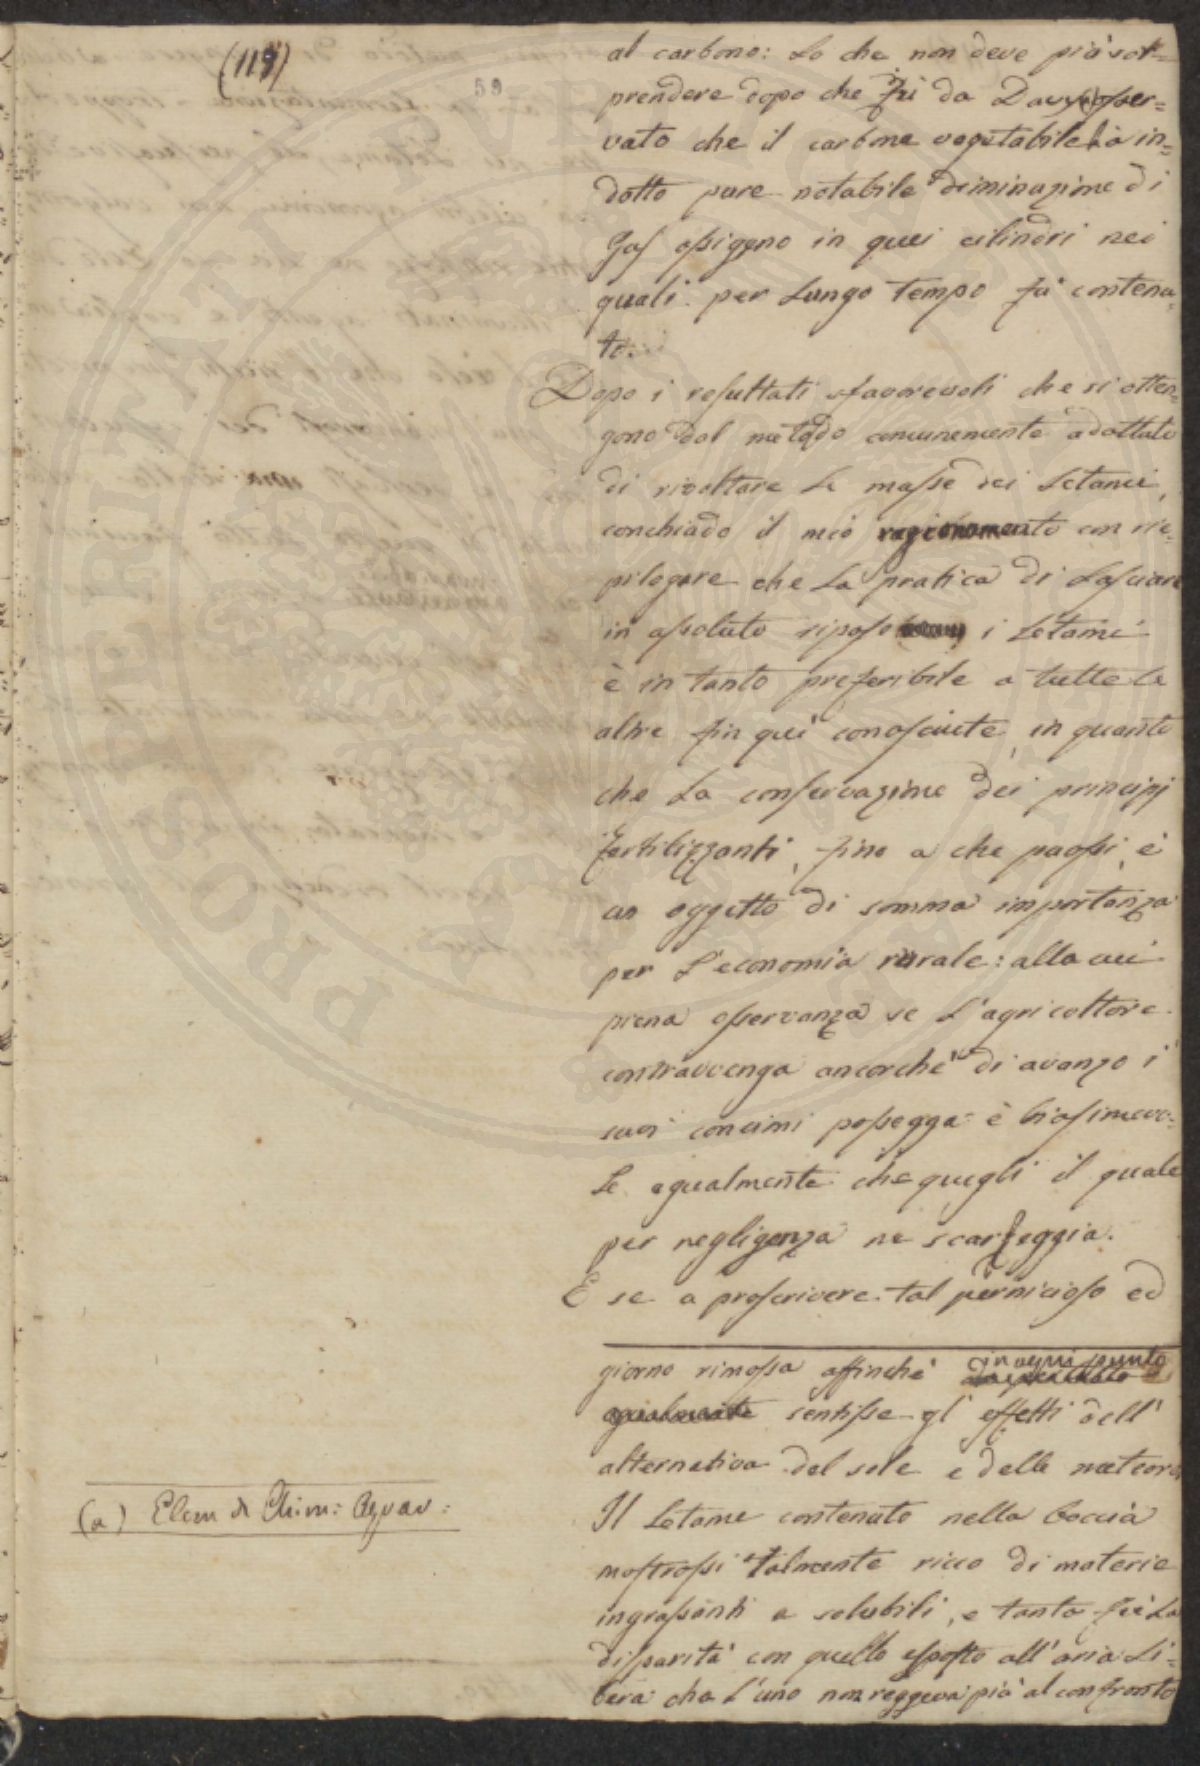 (119)
59
al carbone: Lo che non deve più sor=
prendere dopo che fù da Davy osser=
vato che il carbone vegetabile hà in=
dotto pure notabile diminuzione di
Gas ossigeno in quei cilindri nei
quali per lungo tempo fù contenu=
to.
Dopo i resultati sfavorevoli che si otten=
gono dal metodo comunemente adottato
di rivoltare le masse dei Letami,
conchiudo il mio ragionamento con rie=
pilogare che La pratica di Lasciare
in assoluto riposo i Letami
è in tanto preferibile a tutte le
altre fin qui conosciute, in quanto
che La conservazione dei principj
fertilizzanti, fino a che puossi, è
un oggetto di somma importanza
per L'economia rurale: alla cui
piena osservanza se L'agricoltore
contravvenga ancorchè di avanzo i
suoi concimi possegga è biasimevo=
Le egualmente che quegli il quale
per negligenza ne scarseggia.
E se a proscrivere tal pernicioso ed
giorno rimossa affinchè in ogni punto
egualmente sentisse gl'effetti dell'
alternativa del sole e delle meteore
Il Letame contenuto nella boccia
mostrossi talmente ricco di materie
ingrassanti e solubili, e tanta fù La
disparità con quello esposto all'aria Li=
bera che L'uno non reggeva più al confronto
(a) Elem di Chim: Agrar: